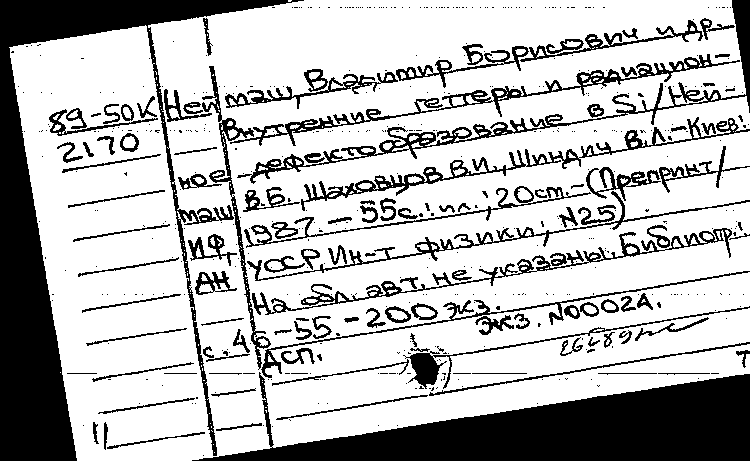 89-50К Неймаш, Владимир Борисович и др.
2170 Внутренние геттеры и радиацион-
ное дефектообразование в Si/Ней-
маш В.Б., Шаховцов В.И., Шиндич В.Л.-Киев:
ИФ, 1987. - 55с.: ил.; 20см.-(Препринт/
АН УССР, Ин-т физики; N25)
На обл. авт. не указаны. Библиогр.:
с. 46-55.-200 экз.
ДСП. Экз. N00024.
11